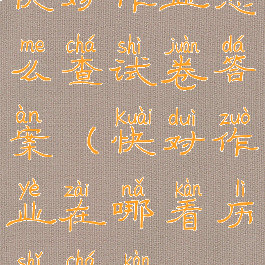 快对作业怎
me chá shì juàn dá
么查试卷答
àn kuài duì zuò
案（快对作
yè zài nǎ kàn lì
业在哪看历
shǐ chá kàn